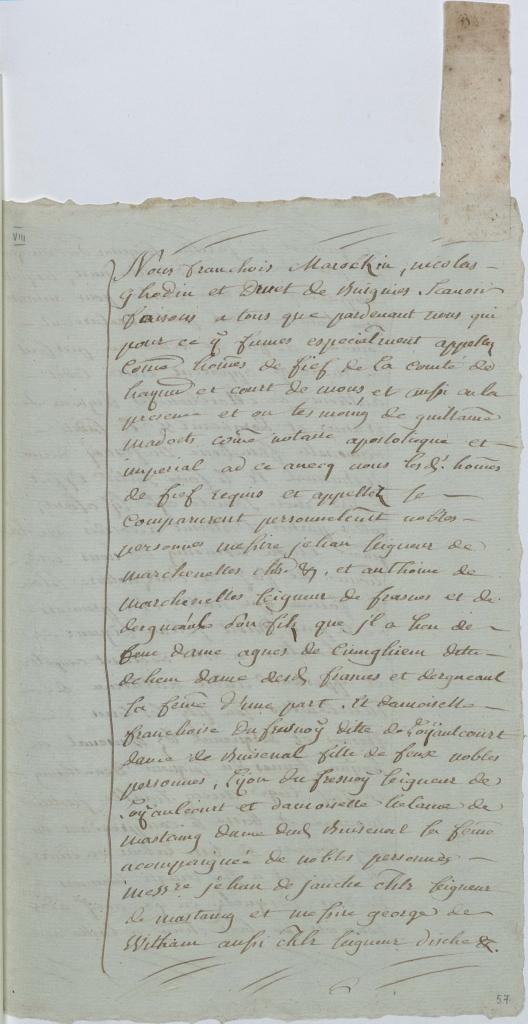 VIII
Nous franchois Marockin, nicolas
ghodin et Druet de Buignies scanoir
faisons a tous que pardevant nous qui
pour ce y fumes especiallment appellez
Come homes de fief de la comté de
haynau et court de mons et aussi en la
presence et ou tesmoing de guillame
madocts come notaire apostolicque et
imperial ad ce avecq nous lesd. homes
de fief requis et appellez se
comparurent personnelemt nobles
personnes messire jehan seigneur de
marchenelles chlr &, et anthoine de
marchenelles seigneur de frasnes et de
son filz que jl a heu de
feue dame agnes de
dame desd frasnes et dergneaul
sa feme d'une part. Et damoiselle
franchoise du fresnoy ditte de Loyaulcourt
dame de Buisenal fille de feux nobles
personnes, Lyon du fresnoy seigneur de
Loyaulcourt et damoiselle helaine de
mastaing dame dud Buisenal sa feme
acompaignée de nobles personnes
messire jehan de jauche chlr seigneur
de mastaing et messire george de
Witham aussi chlr seigneur dische &.
57